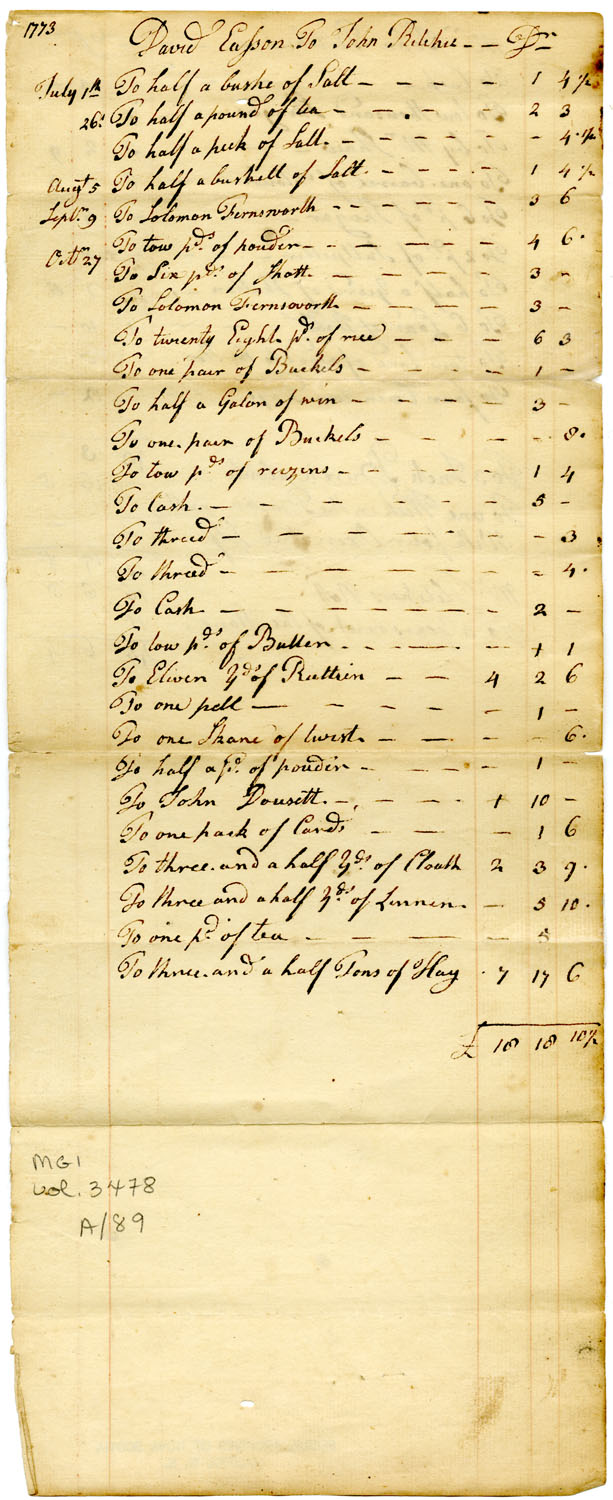 1773
David Easson To John Ritchie - - Dr
July 1st To half a bushe of Salt - - - - - 1 4 1/2
26d To half a pound of tea - - - - - 2 3
To half a peck of Salt - - - - - - - 4 1/2
Augt 5 To half a bushell of Salt - - - - 1 4 1/2
Septm 9 To Solomon Fernsworth - - - - - - 3 6
To tow pds of pouder - - - - - - 4 6
Octbr 27 To Six pds of Shott - - - - - - 3 -
To Solomon Fernsworth - - - - - 3 -
To twenty Eight pd of rice - - - - 6 3
To one pair of Buckels - - - - - 1 -
To half a Galon of win - - - - - 3 -
To one pair of Buckels - - - - - 8
To tow pds of reezens - - - - - - 1 4
To Cash - - - - - - - 5 -
To threed - - - - - - - 3
To threed - - - - - - - - 4
To Cash - - - - - - - - 2 -
To tow pds of Butter - - - - - - 1 1
To Eliven Yds of Ruttein - - 4 2 6
To one pell - - - - - - 1 -
To one Skane of twist - - - - - 6
To half a pd of pouder - - - - - 1 -
To John Dousett - - - - 1 10 -
To one pack of Cards - - - - 1 6
To three and a half Yds of Cloath 2 3 9
To three and a half Yds of Linnen - - 5 10
To one pd of tea - - - - - 5
To three and a half Tons of Hay 7 17 6
£ 18 18 10 1/2
MG1
vol. 3478
A/89